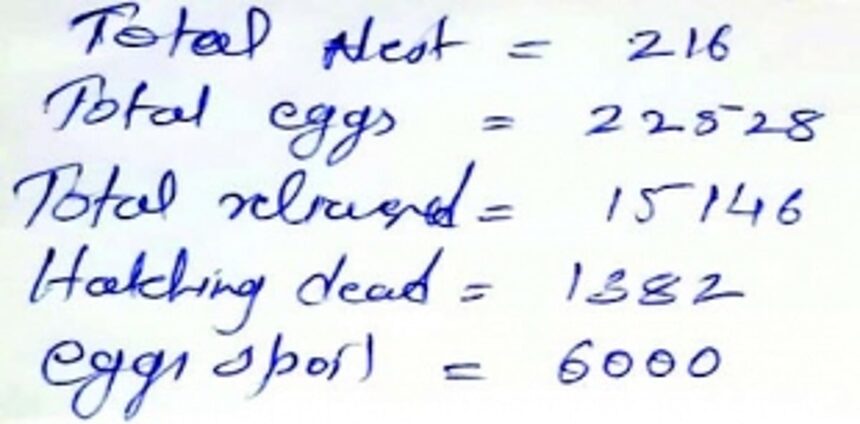 Total Nest = 216
Total eggs = 22528
Total released = 15146
Hatching dead = 1382
eggs spoil = 6000